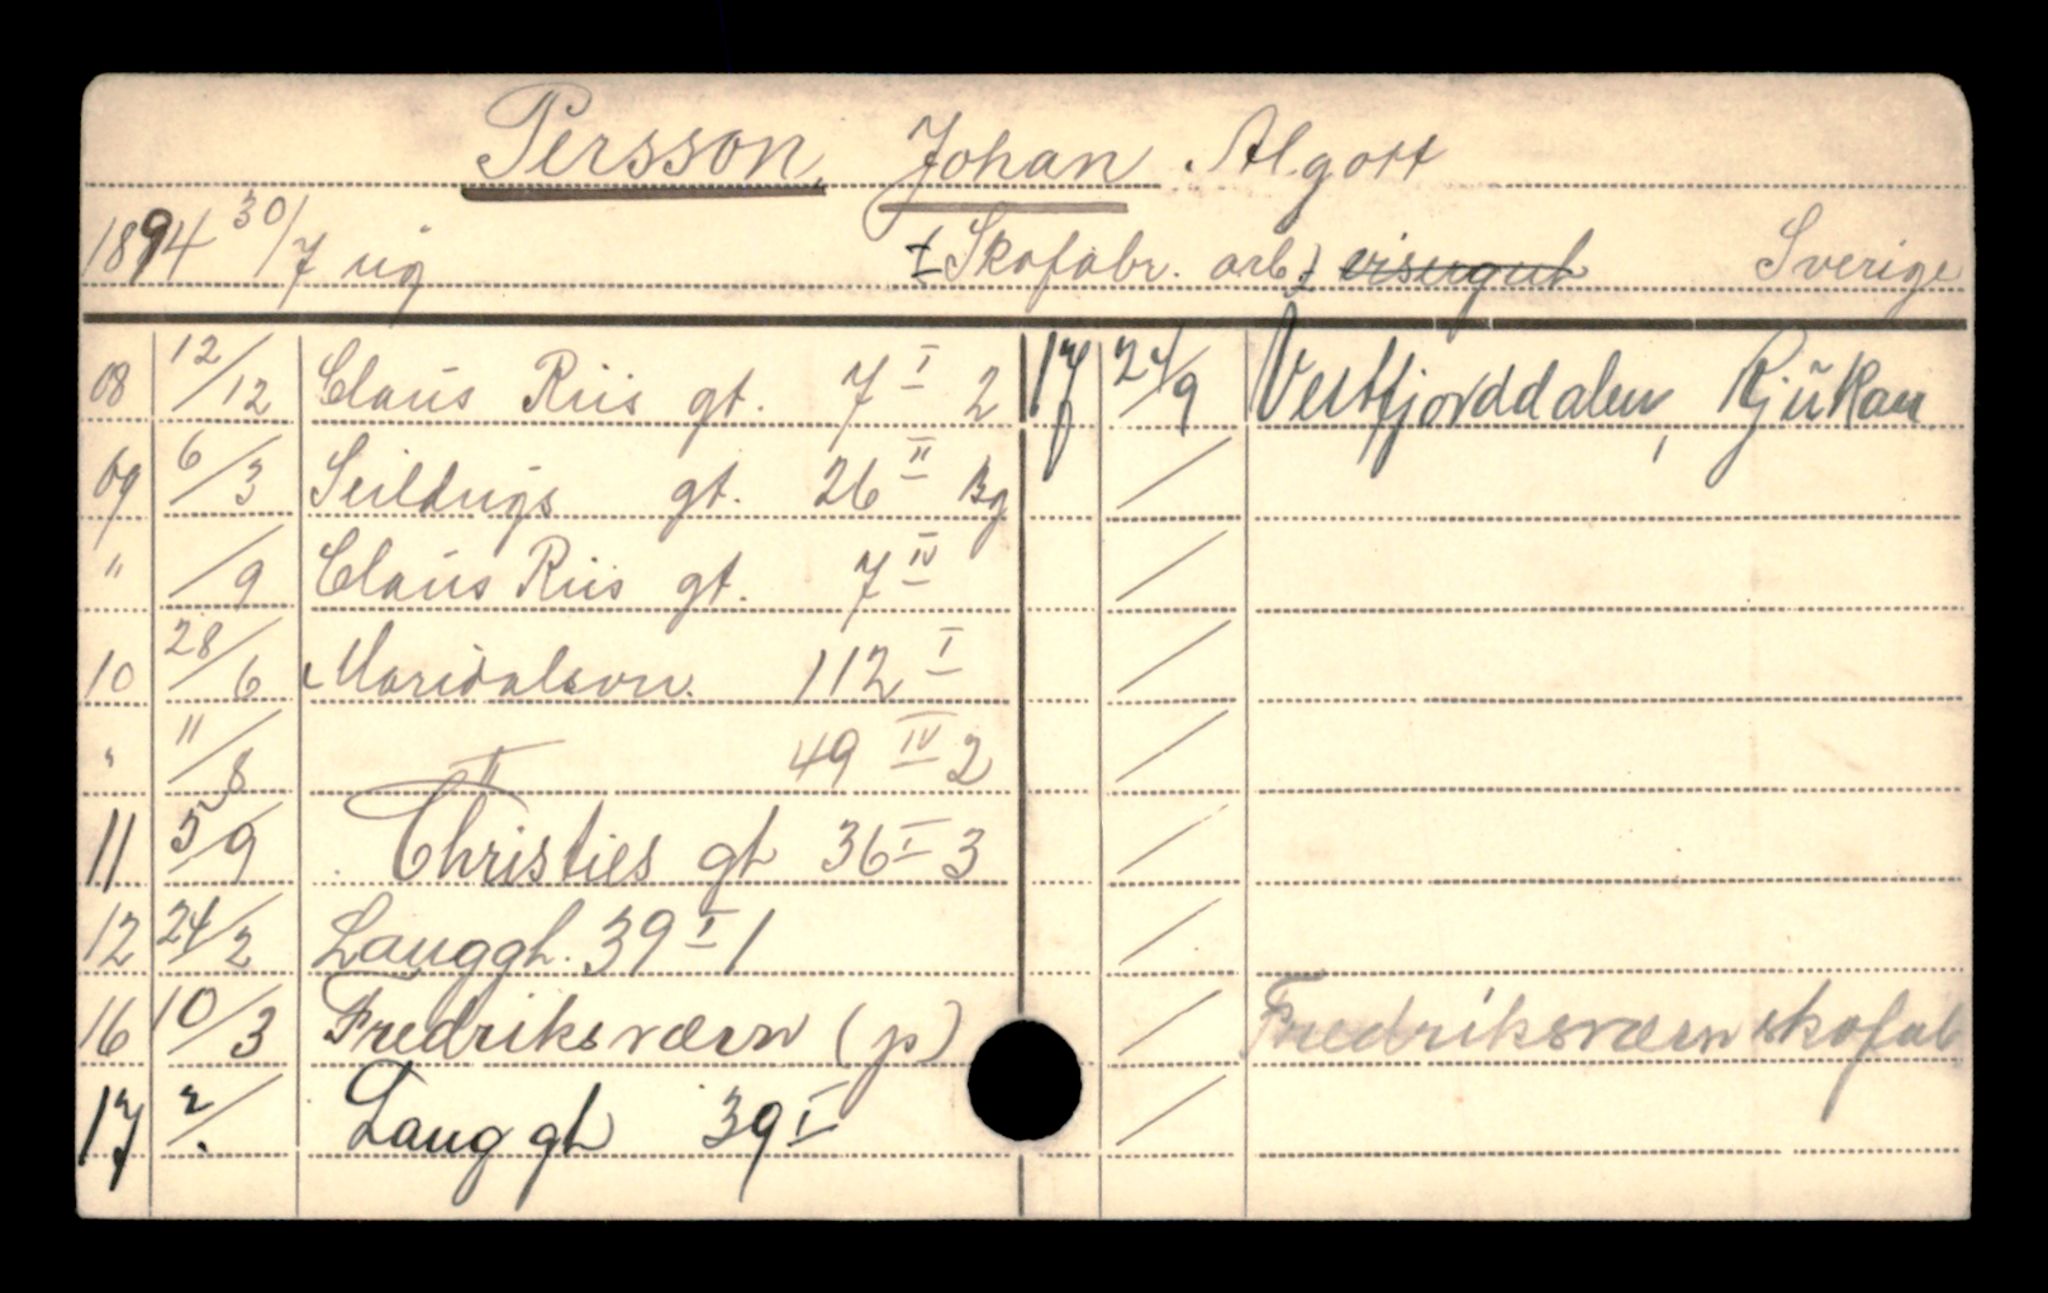 Persson, Johan Algott
1894 30/7 ug ( Skofabr. arb.) visergut Sverige
08 12/12 Claus Riis gt. 7 I 2
09 6/3 Seildugs gt. 26 II Bg
" /9 Claus Riis gt. 7 IV
10 28/6 Maridalsvn. 112 I
" 11/8 " 49 IV 2
11 5/9 Christies gt 36 I 3
12 24/2 Langgt. 39 I 1
16 10/3 Fredriksværn (p)
17 2/. Lang gt 39 I
17 24/9 Vestfjorddalen, Rjukan
Fredriksværn skofab